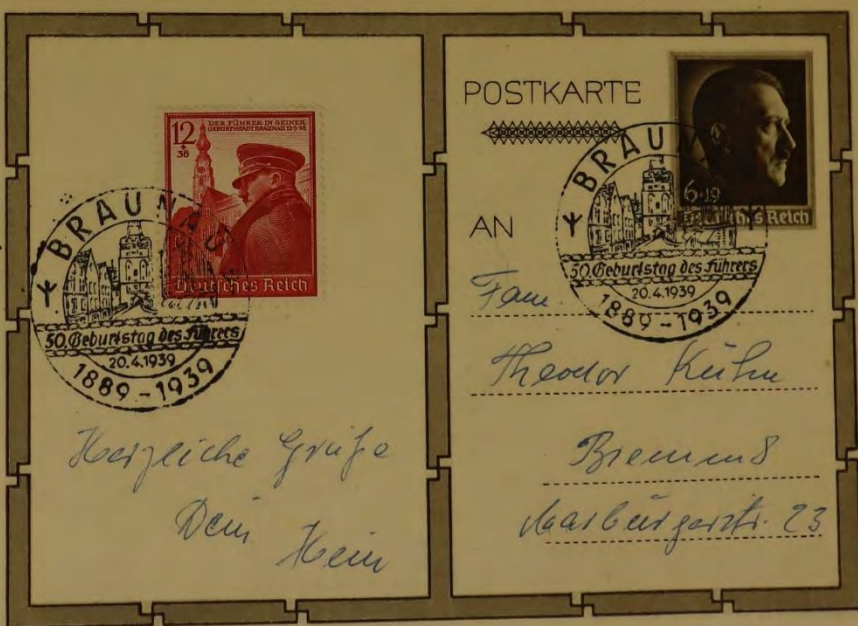 12
38
DER FÜHRER IN SEINER
GEBURTSSTADT BRAUNAU
Deutsches Reich
BRAUNAU
50. Geburtstag des Führers
20.4.1939
1889-1939
Herzliche Grüße
Dein
Hein
POSTKARTE
6+19
Deutsches Reich
BRAU
50. Geburtstag des Führers
20.4.1939
1889-1939
AN
Fam.
Theodor Kühn
Bremen
23